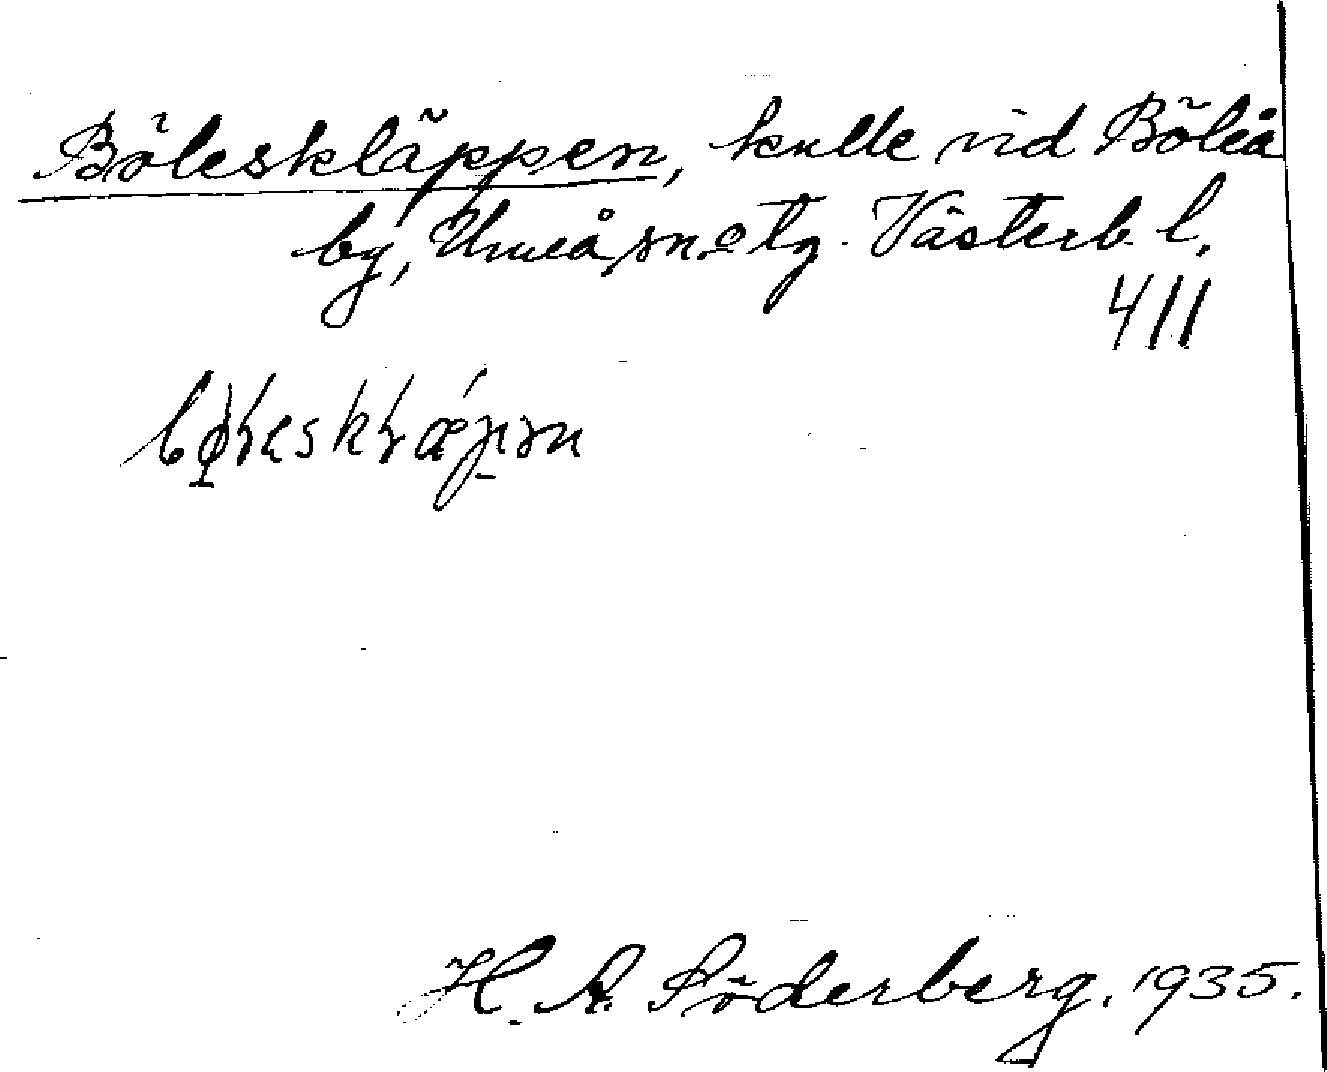 Böleskläppen, kulle vid Böleå
by, Umeå sn. o tg. Västerb. l.
411
H. A. Söderberg. 1935.